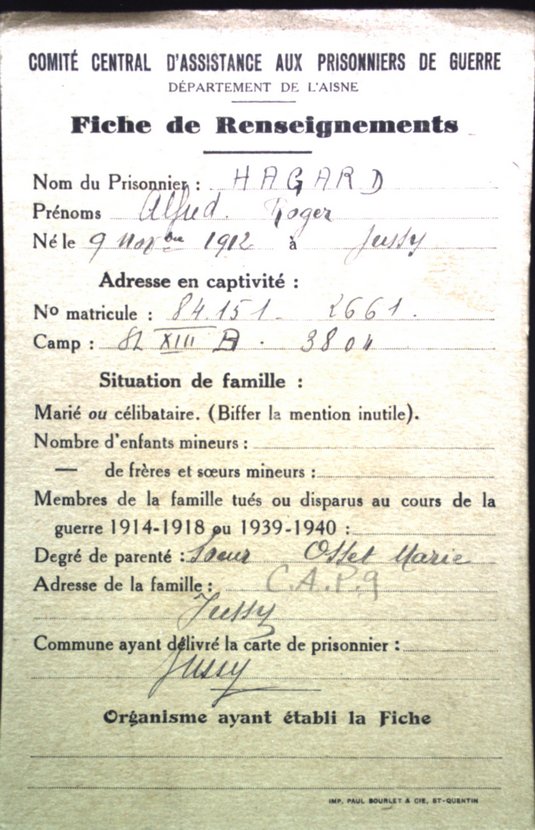 COMITÉ CENTRAL D'ASSISTANCE AUX PRISONNIERS DE GUERRE
DÉPARTEMENT DE L'AISNE
Fiche de Renseignements
Nom du Prisonnier : HAGARD
Prénoms Alfred. Roger
Né le 9 Novbre 1912 à Jussy
Adresse en captivité :
No matricule : 84.151 - 2661.
Camp : XIII B.
Situation de famille :
Marié ou célibataire. (Biffer la mention inutile).
Nombre d'enfants mineurs :
— de frères et sœurs mineurs :
Membres de la famille tués ou disparus au cours de la
guerre 1914-1918 ou 1939-1940 :
Degré de parenté : Soeur Osset Marie
Adresse de la famille : C.A.P.9
Jussy
Commune ayant délivré la carte de prisonnier :
Jussy
Organisme ayant établi la Fiche
IMP. PAUL BOURLET & CIE, ST-QUENTIN